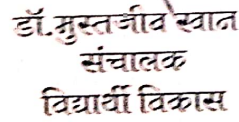 डॉ. मुस्तजीब खान
संचालक
विद्यार्थी विकास